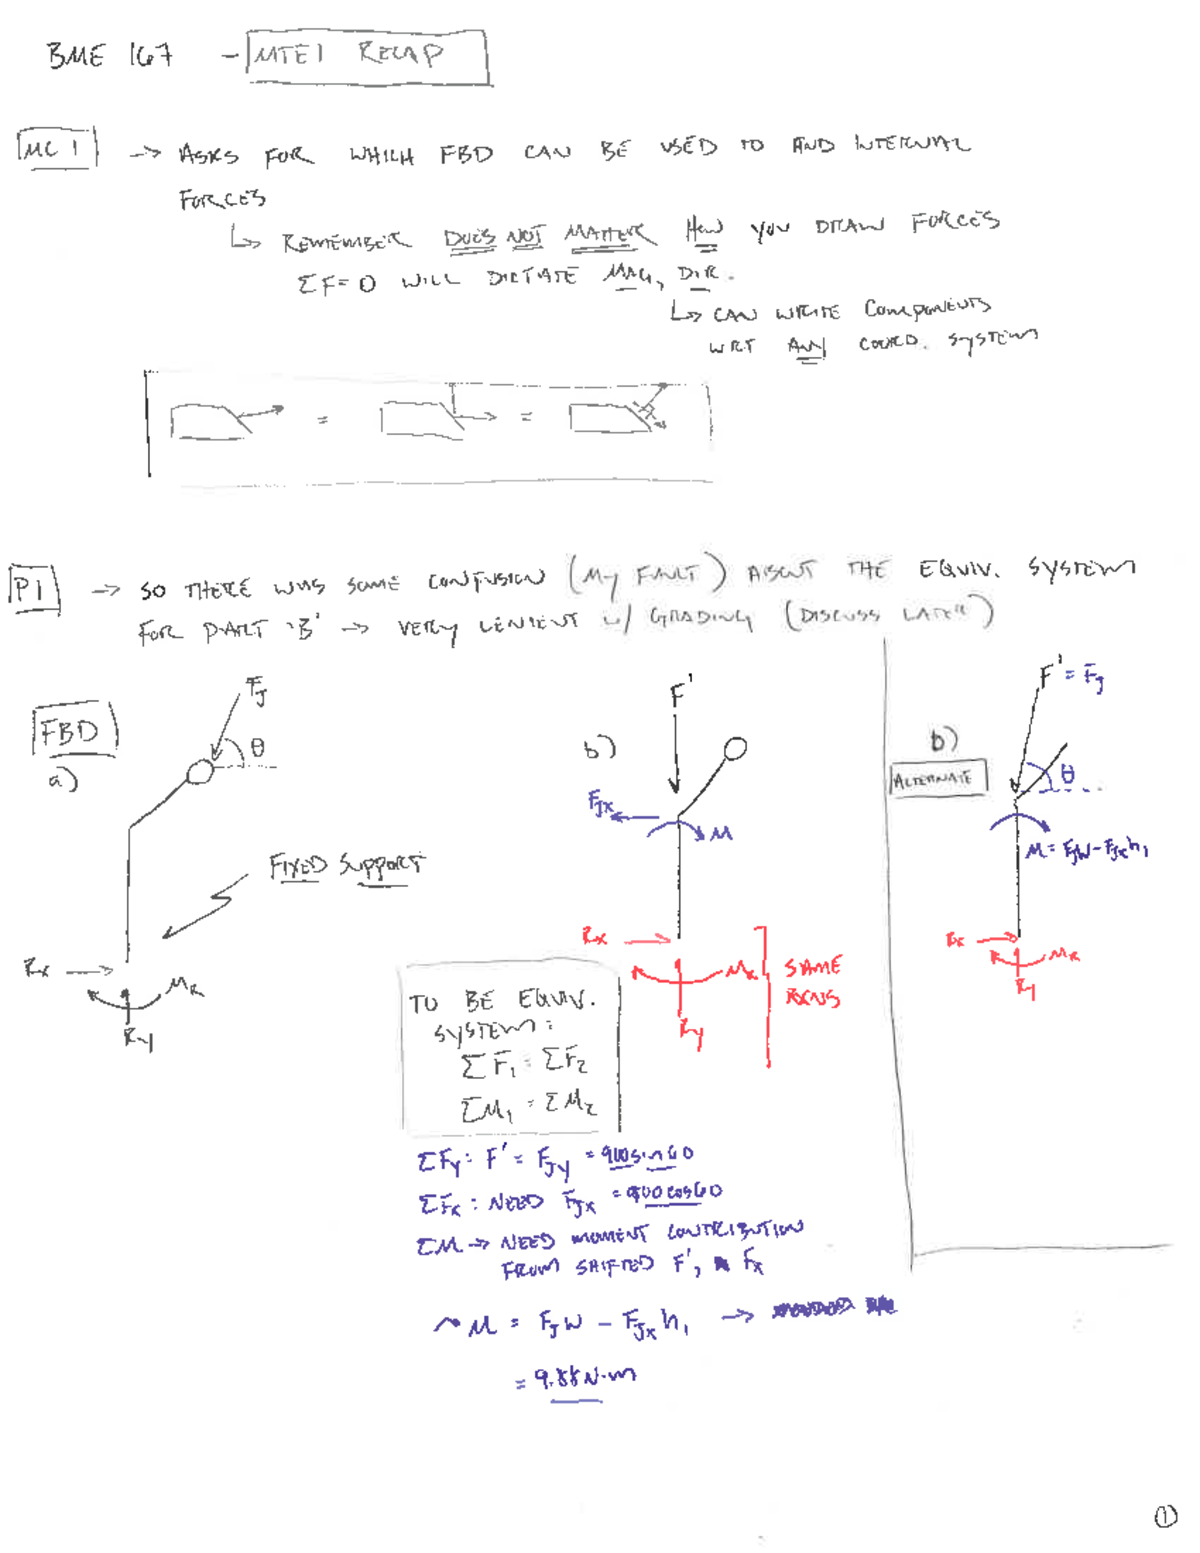 BME 167 - MTE1 RECAP
MC 1 → ASKS FOR WHICH FBD CAN BE USED TO FIND INTERNAL
FORCES
↳ REMEMBER DOES NOT MATTER HOW YOU DRAW FORCES
ΣF=0 WILL DICTATE MAG, DIR.
↳ CAN WRITE COMPONENTS
WRT ANY COORD. SYSTEM
= =
P1 → SO THERE WAS SOME CONFUSION (MY FAULT) ABOUT THE EQUIV. SYSTEM
FOR PART 'B' → VERY LENIENT w/ GRADING (DISCUSS LATER)
FBD
a)
F_J
θ
FIXED SUPPORT
R_x
M_R
R_y
b)
F'
F_Jx
M
R_x
M_R
R_y
SAME
RXNS
b)
ALTERNATE
F' = F_J
θ
M = F_JW - F_Jxh_1
R_x
M_R
R_y
TO BE EQUIV.
SYSTEM:
ΣF_1 = ΣF_2
ΣM_1 = ΣM_2
ΣF_y: F' = F_Jy = 900sin60
ΣF_x: NEED F_Jx = 900cos60
ΣM → NEED MOMENT CONTRIBUTION
FROM SHIFTED F', F_x
M = F_JW - F_Jxh_1 →
= 9.88N·m
1